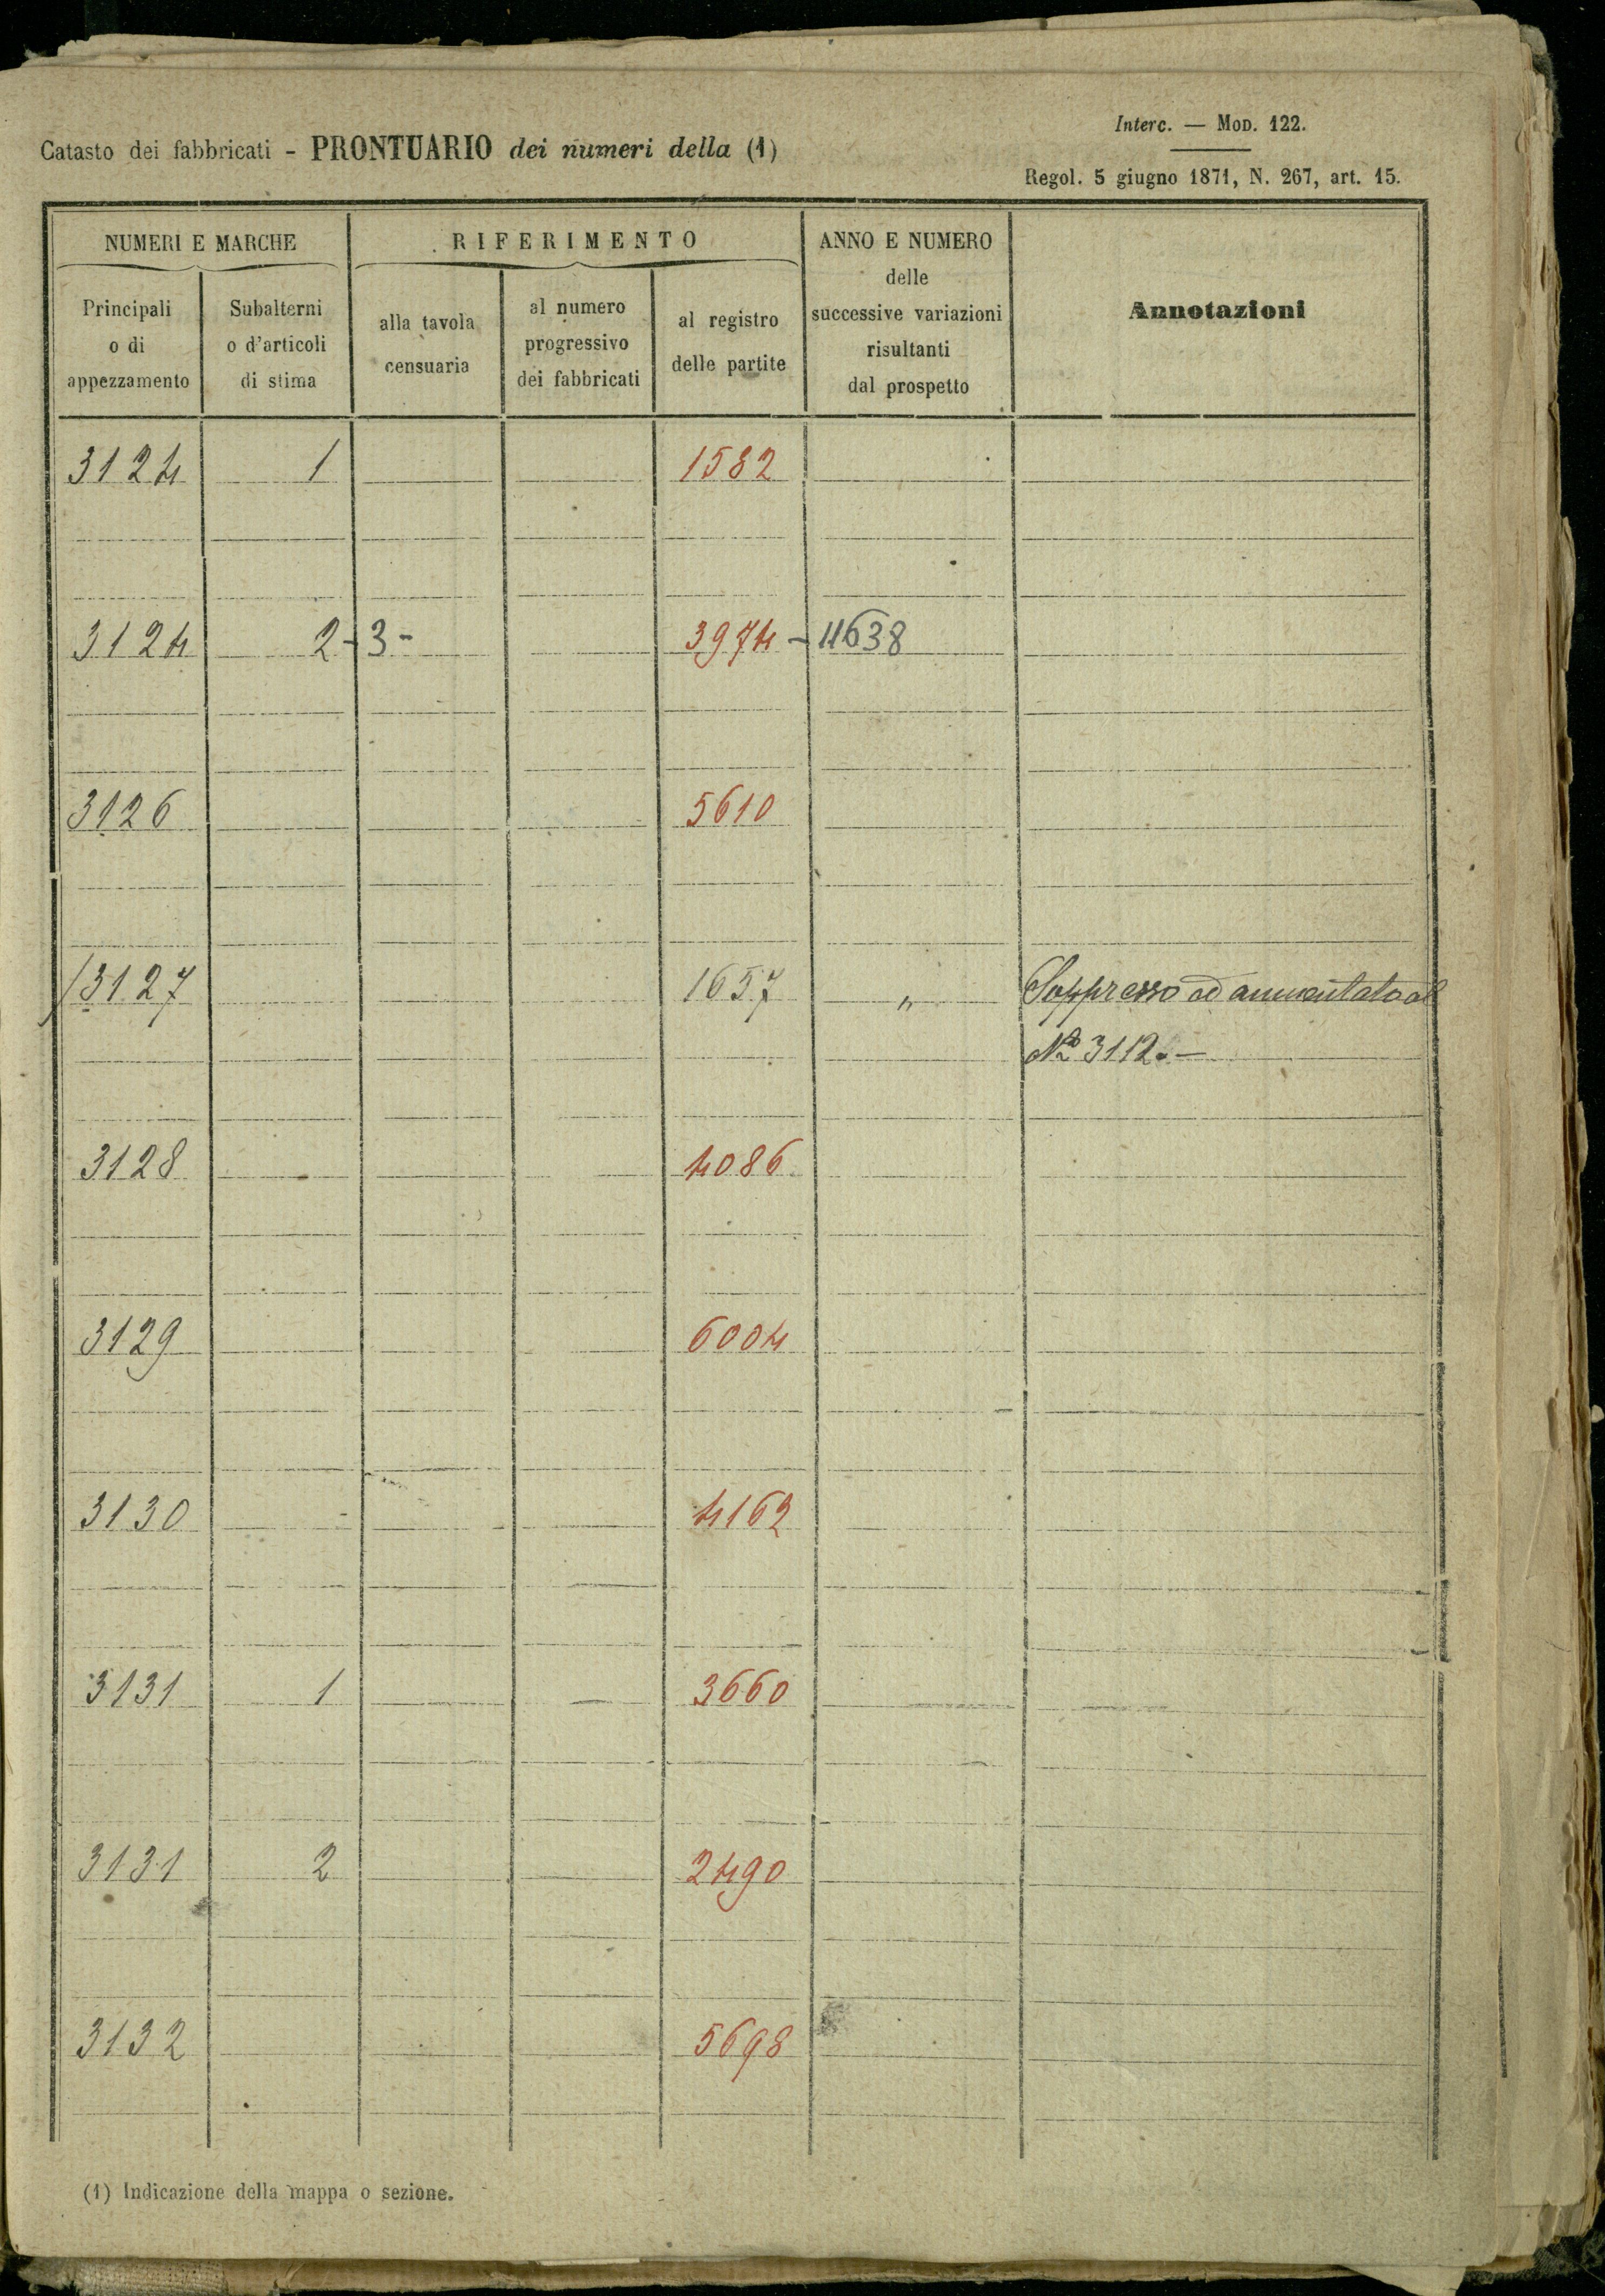 Interc. — MOD. 122.
Catasto dei fabbricati - PRONTUARIO dei numeri della (1)
Regol. 5 giugno 1871, N. 267, art. 15.
NUMERI E MARCHE
RIFERIMENTO
ANNO E NUMERO
delle
successive variazioni
risultanti
dal prospetto
Annotazioni
Principali
o di
appezzamento
Subalterni
o d'articoli
di stima
alla tavola
censuaria
al numero
progressivo
dei fabbricati
al registro
delle partite
3124 1 1582
3124 2-3- 3974 - 11638
3126 5610
3127 1657 " Soppresso ed aumentato al
No 3112.—
3128 4086
3129 6004
3130 4162
3131 1 3660
3131 2 2490
3132 5698
(1) Indicazione della mappa o sezione.